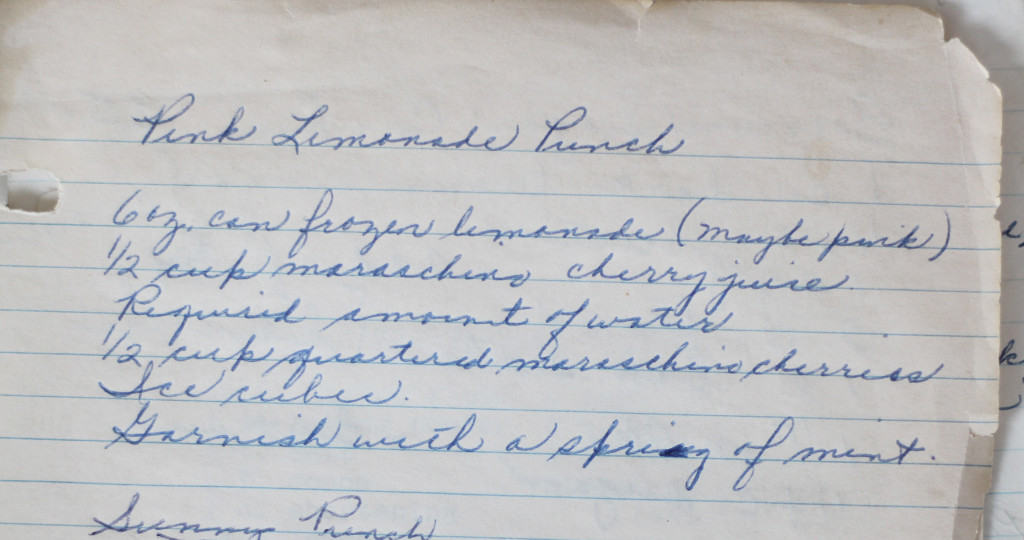 Pink Lemonade Punch
6 oz. can frozen lemonade (maybe pink)
1/2 cup maraschino cherry juice
Required amount of water
1/2 cup quartered maraschino cherries
Ice cubes.
Garnish with a sprig of mint.
Sunny Punch